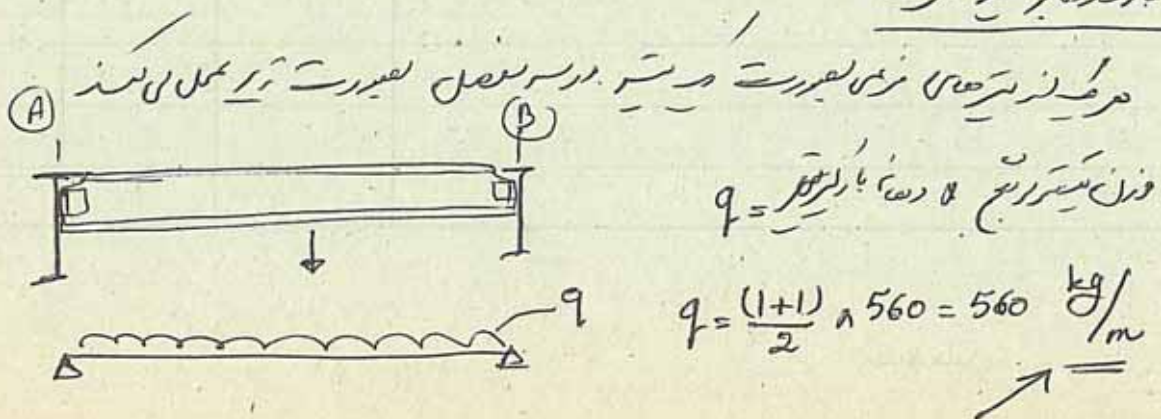 هر یک از تیرهای فرعی بصورت یک تیر دو سر مفصل بصورت زیر عمل می کند
A B
q = وزن یک متر مربع × دهانه بارگیر تیر
q
q = (1+1)/2 × 560 = 560 kg/m